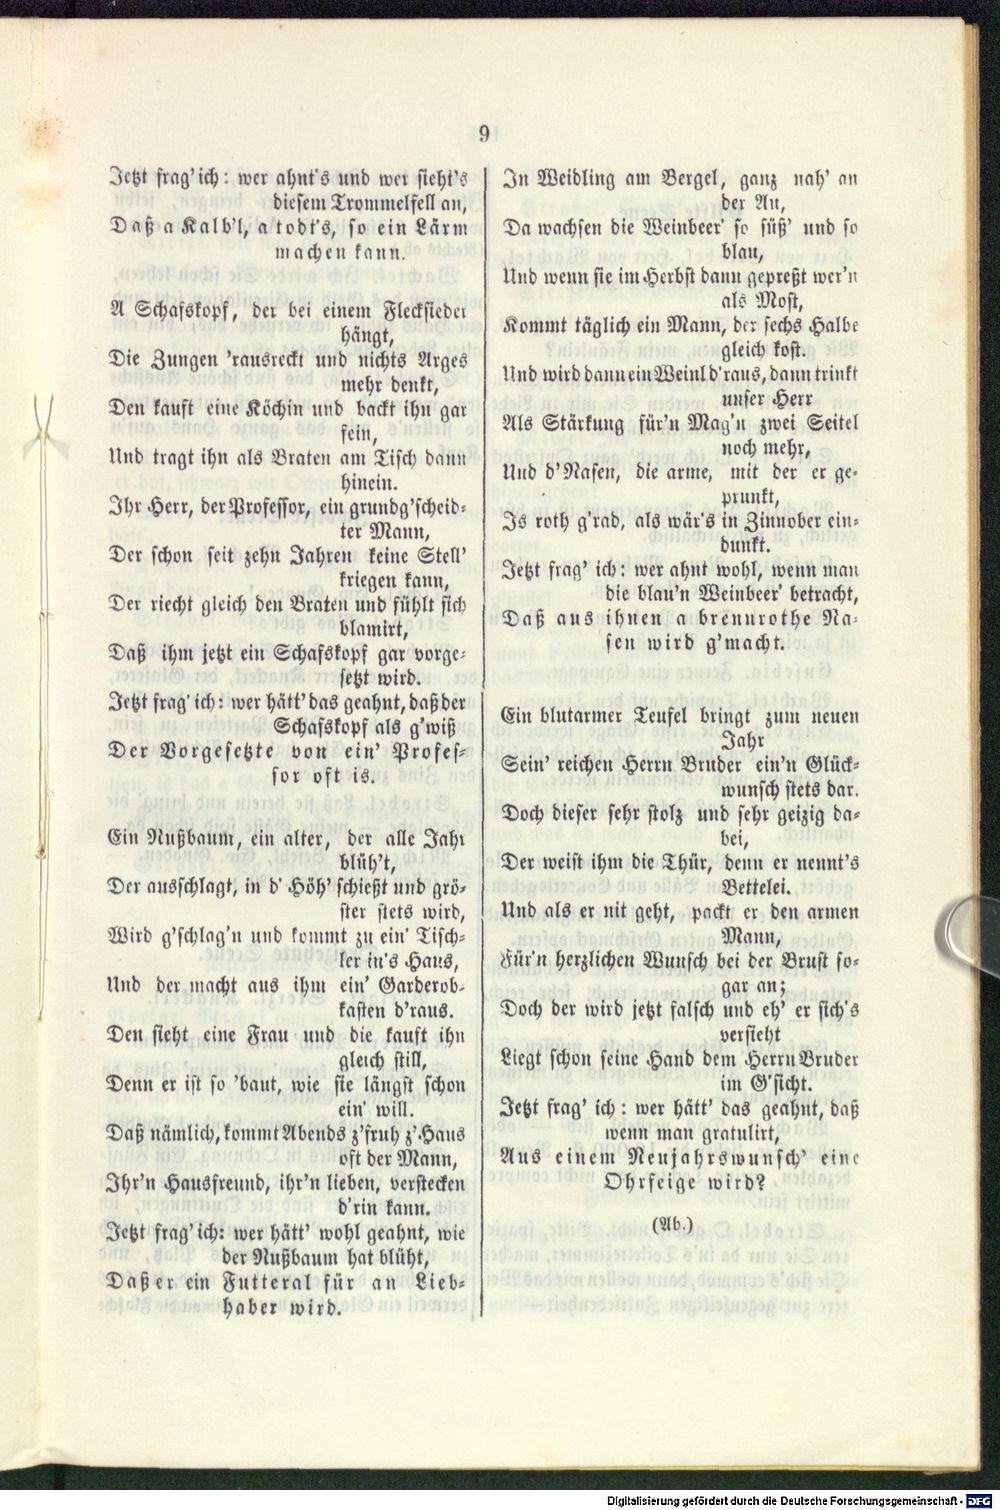 9
Jetzt frag' ich: wer ahnt's und wer sieht's
diesem Trommelfell an,
Daß a Kalb'l, a todt's, so ein Lärm
machen kann.
A Schafskopf, der bei einem Flecksieder
hängt,
Die Zungen 'rausreckt und nichts Arges
mehr denkt,
Den kauft eine Köchin und backt ihn gar
fein,
Und tragt ihn als Braten am Tisch dann
hinein.
Ihr Herr, der Professor, ein grundg'scheid-
ter Mann,
Der schon seit zehn Jahren keine Stell'
kriegen kann,
Der riecht gleich den Braten und fühlt sich
blamirt,
Daß ihm jetzt ein Schafskopf gar vorge-
setzt wird.
Jetzt frag' ich: wer hätt' das geahnt, daß der
Schafskopf als g'wiß
Der Vorgesetzte von ein' Profes-
sor oft is.
Ein Nußbaum, ein alter, der alle Jahr
blüh't,
Der ausschlagt, in d' Höh' schießt und grö-
ster stets wird,
Wird g'schlag'n und kommt zu ein' Tisch-
ler in's Haus,
Und der macht aus ihm ein' Garderob-
kasten d'raus.
Den sieht eine Frau und die kauft ihn
gleich still,
Denn er ist so 'baut, wie sie längst schon
ein' will.
Daß nämlich, kommt Abends z'fruh z'Haus
oft der Mann,
Ihr'n Hausfreund, ihr'n lieben, verstecken
d'rin kann.
Jetzt frag' ich: wer hätt' wohl geahnt, wie
der Nußbaum hat blüht,
Daß er ein Futteral für an Lieb-
haber wird.
In Weidling am Bergel, ganz nah' an
der Au,
Da wachsen die Weinbeer' so süß' und so
blau,
Und wenn sie im Herbst dann gepreßt wer'n
als Most,
Kommt täglich ein Mann, der sechs Halbe
gleich kost.
Und wird dann ein Weinl d'raus, dann trinkt
unser Herr
Als Stärkung für'n Mag'n zwei Seitel
noch mehr,
Und d'Nasen, die arme, mit der er ge-
prunkt,
Is roth g'rad, als wär's in Zinnober ein-
dunkt.
Jetzt frag' ich: wer ahnt wohl, wenn man
die blau'n Weinbeer' betracht,
Daß aus ihnen a brennrothe Na-
sen wird g'macht.
Ein blutarmer Teufel bringt zum neuen
Jahr
Sein' reichen Herrn Bruder ein'n Glück-
wunsch stets dar.
Doch dieser sehr stolz und sehr geizig da-
bei,
Der weist ihm die Thür, denn er nennt's
Bettelei.
Und als er nit geht, packt er den armen
Mann,
Für'n herzlichen Wunsch bei der Brust so-
gar an;
Doch der wird jetzt falsch und eh' er sich's
versieht
Liegt schon seine Hand dem Herrn Bruder
im G'sicht.
Jetzt frag' ich: wer hätt' das geahnt, daß
wenn man gratulirt,
Aus einem Neujahrswunsch' eine
Ohrfeige wird?
(Ab.)
Digitalisierung gefördert durch die Deutsche Forschungsgemeinschaft - DFG